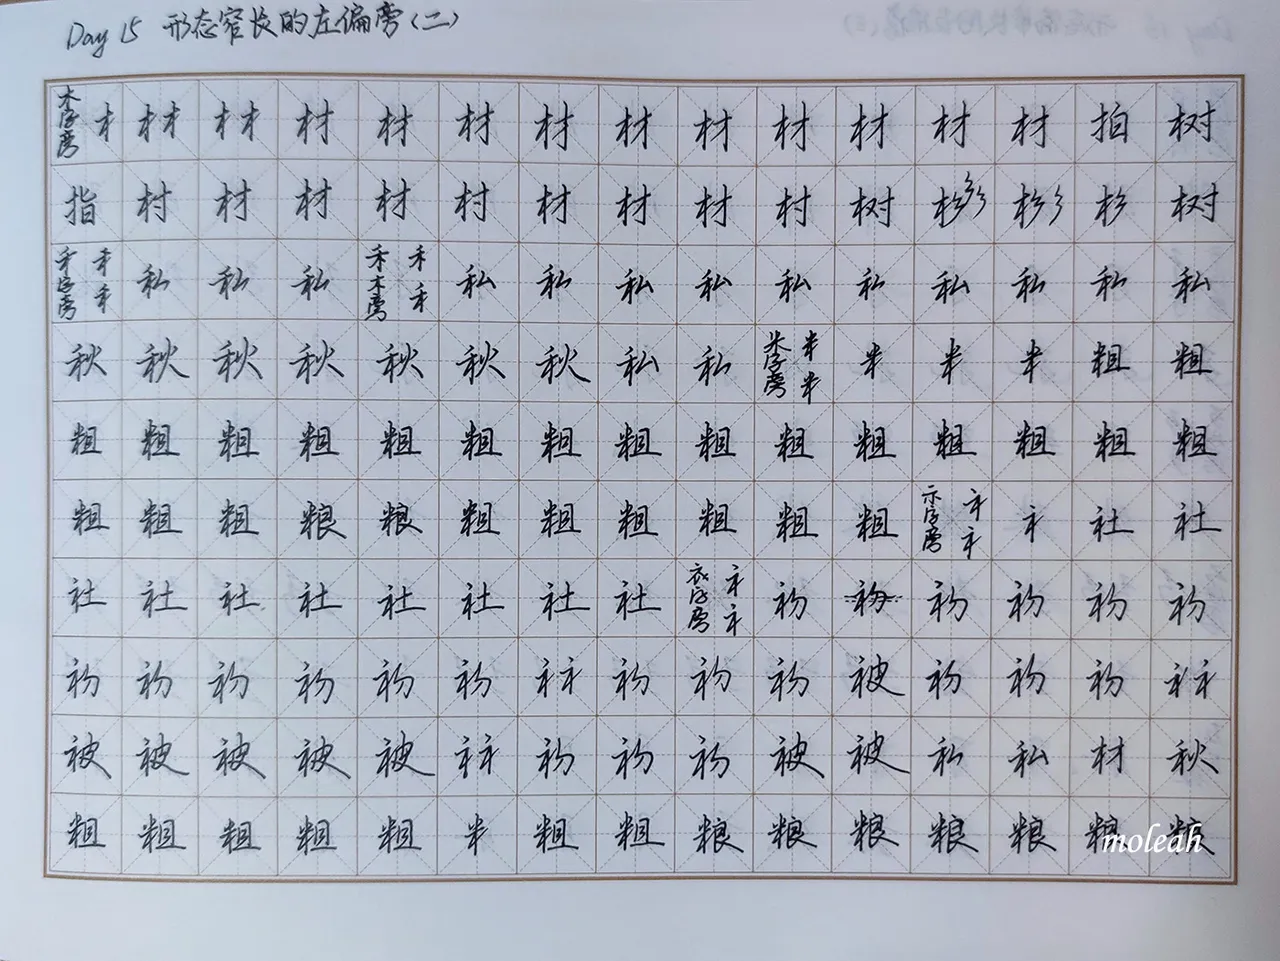 Day 15 形态窄长的左偏旁(二)
木字旁 木 木木 木木 材 材 材 材 材 材 材 材 材 材 拍 树
指 村 材 材 材 村 材 材 材 村 树 杉彡 杉彡 杉 树
禾字旁 禾 禾 私 私 私 禾木旁 禾 禾 私 私 私 私 私 私 私 私 私 私
秋 秋 秋 秋 秋 秋 秋 私 私 米字旁 米 米 米 米 米 粗 粗
粗 粗 粗 粗 粗 粗 粗 粗 粗 粗 粗 粗 粗 粗 粗
粗 粗 粗 粮 粮 粗 粗 粗 粗 粗 粗 示字旁 礻 礻 礻 社 社
社 社 社 社 社 社 社 社 衣字旁 衤 衤 初 初 初 初 初 初
初 初 初 初 初 初 衤衤 初 初 初 被 初 初 初 衤衤
被 被 被 被 被 衤衤 初 初 初 被 被 私 私 材 秋
粗 粗 粗 粗 粗 米 粗 粗 粮 粮 粮 粮 粮 粮 粮
moleah